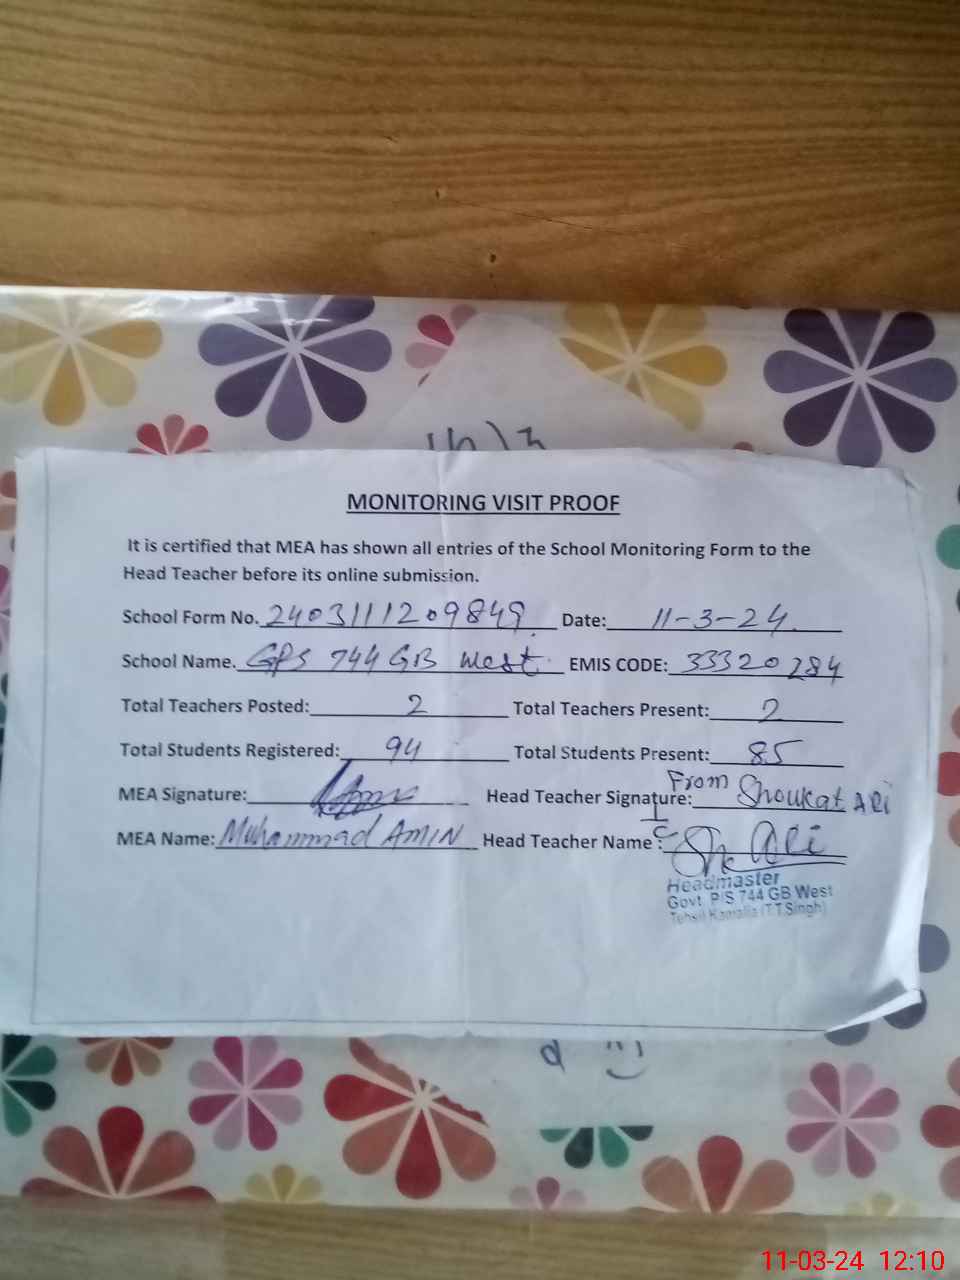 MONITORING VISIT PROOF
It is certified that MEA has shown all entries of the School Monitoring Form to the
Head Teacher before its online submission.
School Form No. 2403111209849 Date: 11-3-24
School Name. GPS 744 GB West EMIS CODE: 33320284
Total Teachers Posted: 2 Total Teachers Present: 2
Total Students Registered: 94 Total Students Present: 85
From
MEA Signature: Head Teacher Signature: Shoukat Ali
MEA Name: Muhammad AMIN Head Teacher Name: Sh Ali
Headmaster
Govt. P/S 744 GB West
Tehsil Kamalia (T.T.Singh)
11-03-24 12:10